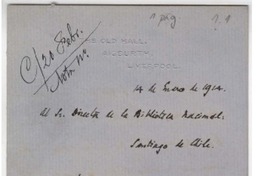 1 pág.
C/20 Febr.
THE OLD HALL,
LIVERPOOL.
14 de Enero de 1914.
Al Sr. Director de la Biblioteca Nacional.
Santiago de Chile.